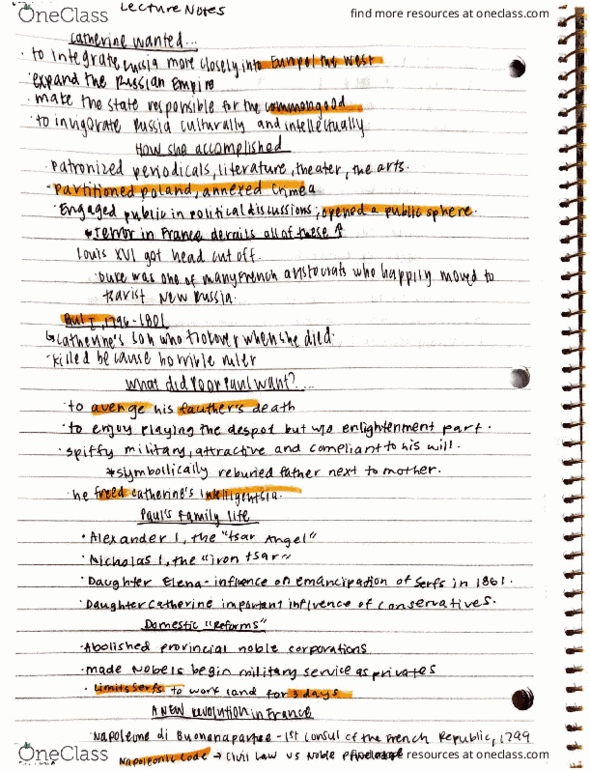 OneClass
Lecture Notes
find more resources at oneclass.com
Catherine wanted...
· to integrate Russia more closely into Europe/ the west
· expand the Russian Empire
· make the state responsible for the common good
· to invigorate Russia culturally and intellectually
How she accomplished
· Patronized periodicals, literature, theater, the arts.
· Partitioned Poland, annexed Crimea
· Engaged public in political discussions; opened a public sphere.
* Terror in France derails all of these ↑
Louis XVI got head cut off.
· Duke was one of many French aristocrats who happily moved to
tsarist New Russia.
Paul I, 1796-1801
↳ Catherine's son who took over when she died.
· killed because horrible ruler
What did Poor Paul want?...
· to avenge his fauther's death
· to enjoy playing the despot but w/o enlightenment part.
· spiffy military, attractive and compliant to his will.
* symbollically reburied father next to mother.
· he freed Catherine's Intelligentsia.
Paul's Family life
· Alexander I, the "tsar Angel"
· Nicholas I, the "iron tsar"
· Daughter Elena - influence on emancipation of serfs in 1861.
· Daughter Catherine important influence of conservatives.
Domestic "Reforms"
· Abolished provincial noble corporations
· made Nobels begin military service as privates
· Limits serfs to work land for 3 days
A New Revolution in France
· Napoleone di Buonaparte - 1st Consul of the French Republic, 1799
Napoleonic Code → Civil Law vs Noble
OneClass
find more resources at oneclass.com